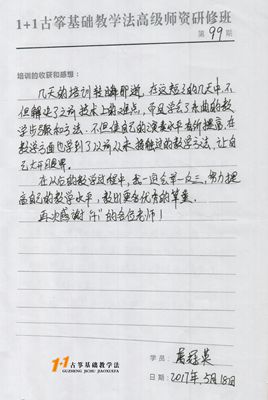 1+1古筝基础教学法高级师资研修班
第 99 期
培训的收获和感想：
几天的培训转瞬即逝，在这短短的几天中，不
但解决了之前技术上的难点，而且学会了乐曲的教
学步骤和方法，不但使自己的演奏水平有所提高，在
教学方面也学到了以前从未接触过的教学方法，让自
己大开眼界。
在以后的教学过程中，我一定会举一反三，努力提
高自己的教学水平，教出更多优秀的学生。
再次感谢1+1的各位老师！
1+1 古筝基础教学法
GUZHENG JICHU JIAOXUEFA
学员：
日期：2017年5月18日